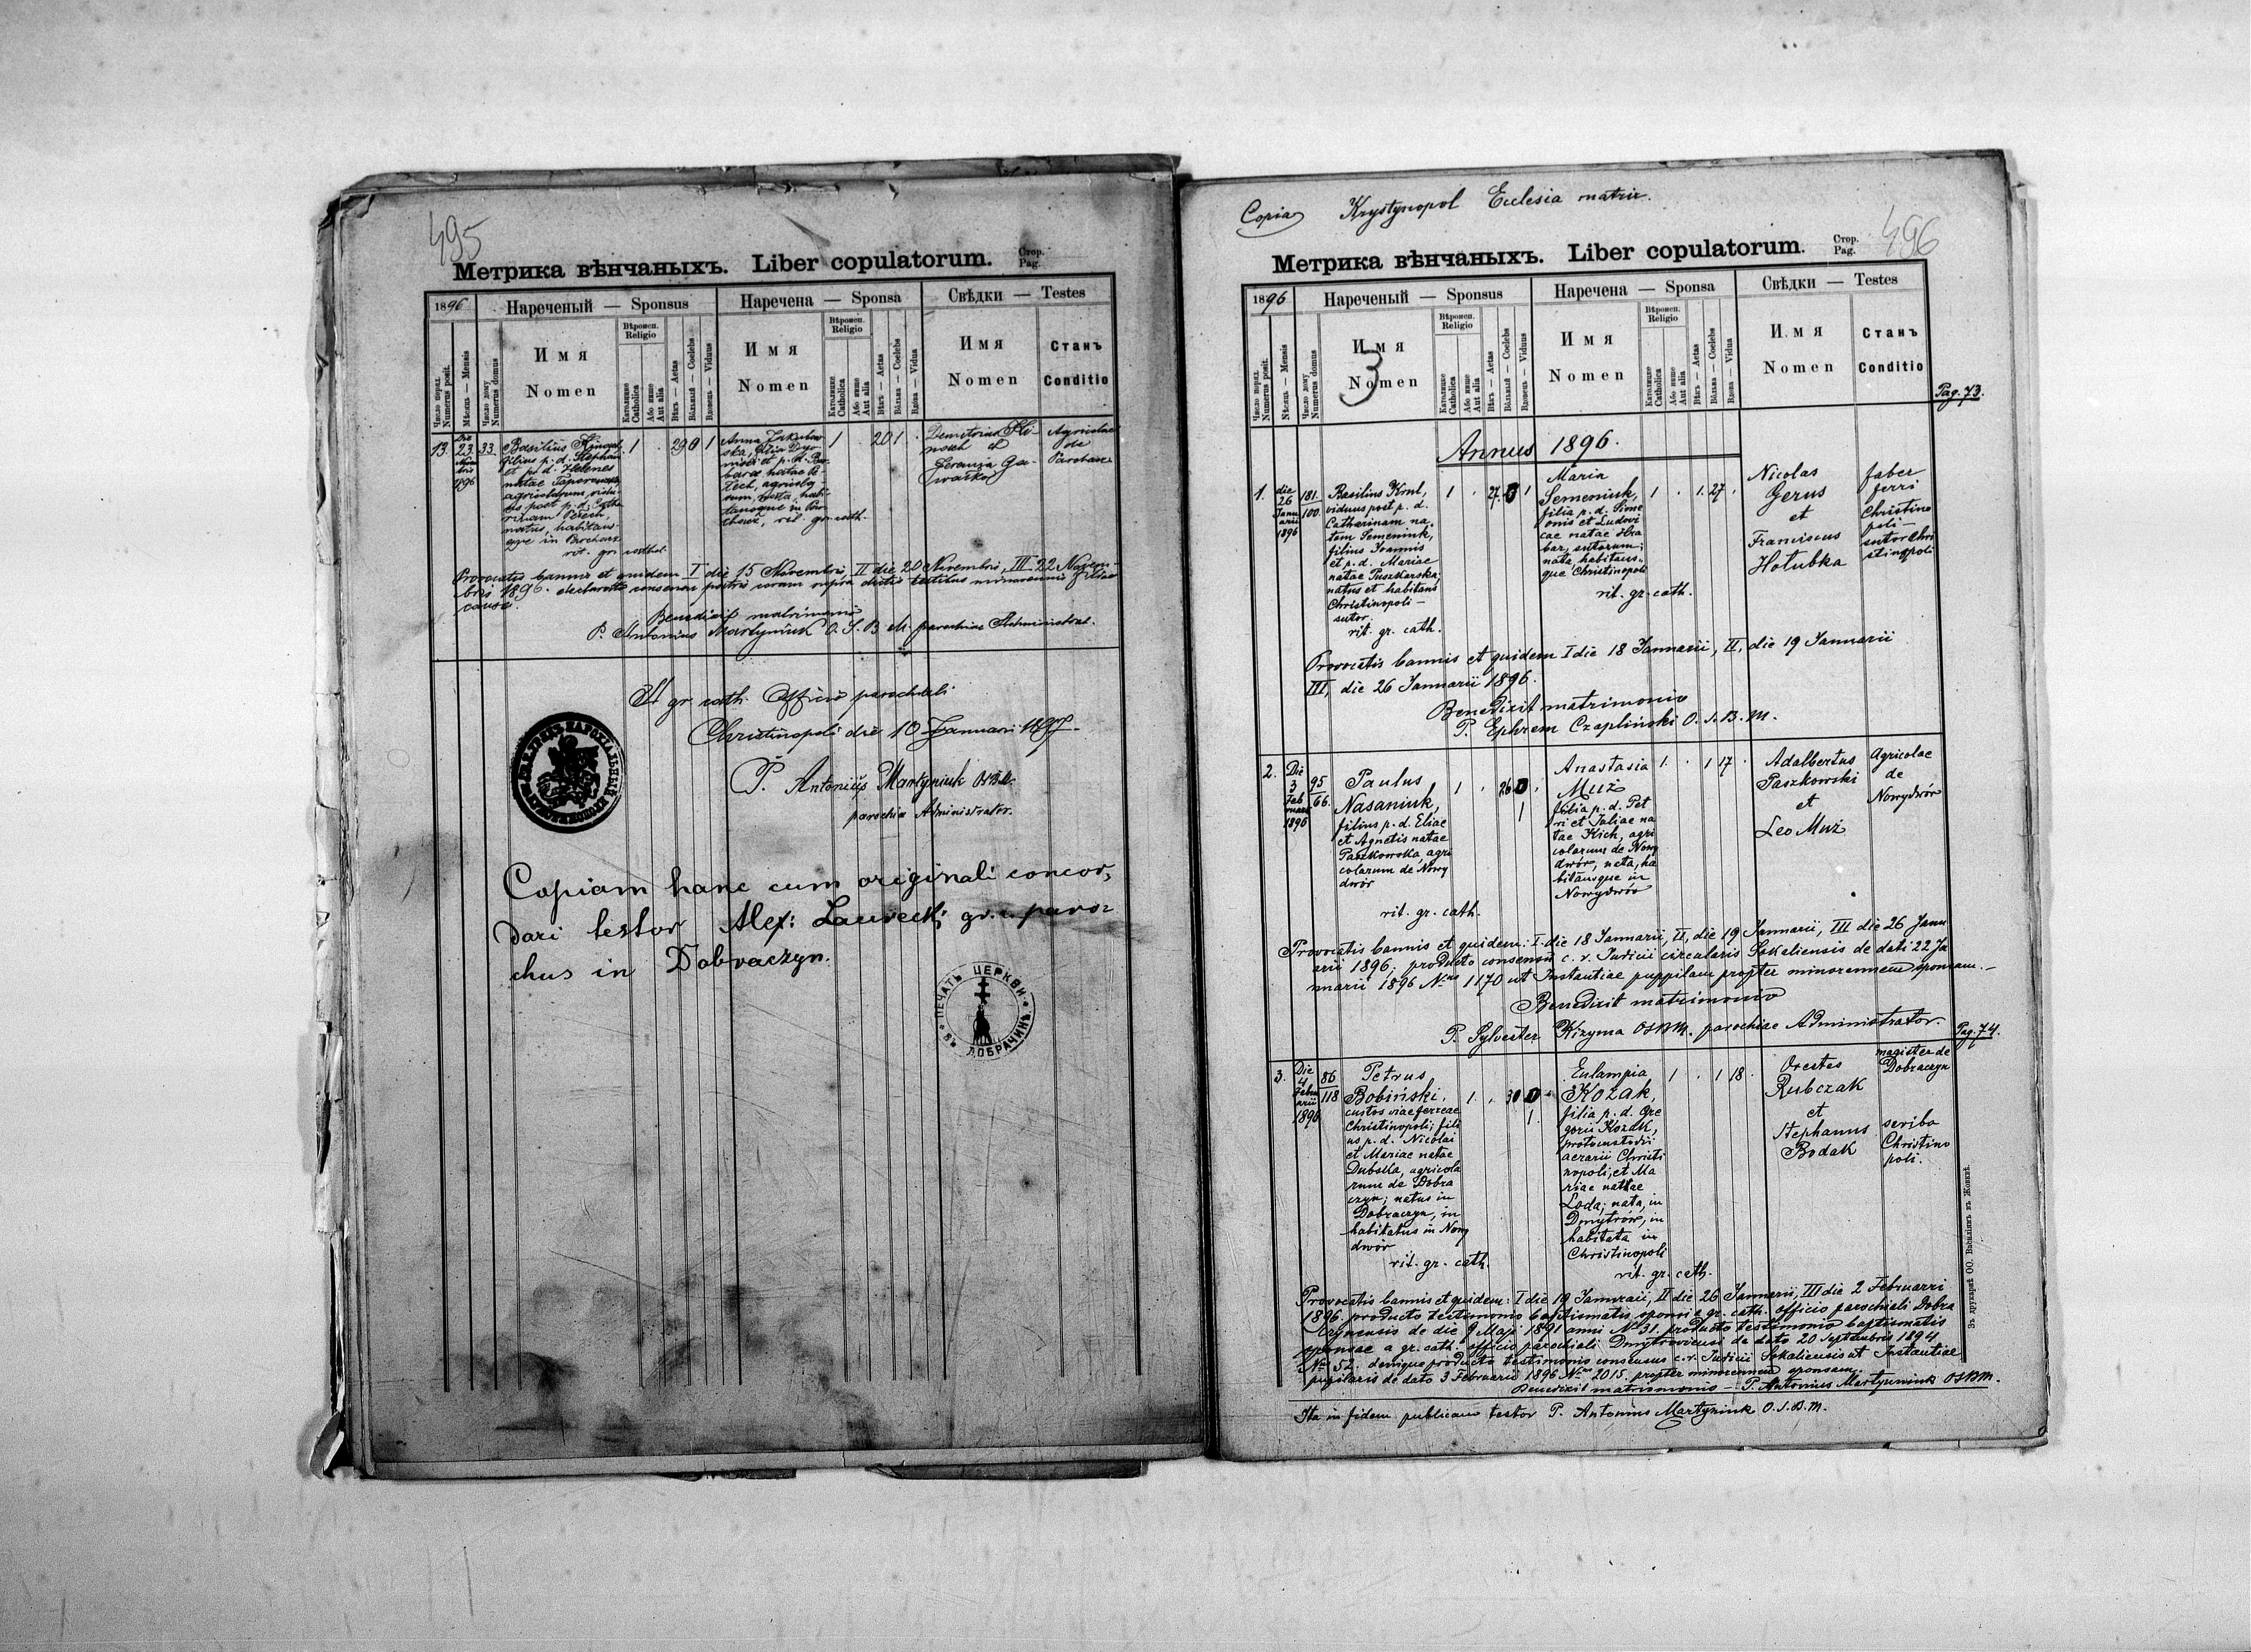 495
Метрика вѣнчаныхъ. Liber copulatorum.
Стор.
Pag.
1896
Нареченый — Sponsus
Наречена — Sponsa
Свѣдки — Testes
Число поряд.
Numerus posit.
Мѣсяць — Mensis
Число дому
Numerus domus
Имя
Nomen
Вѣроисп.
Religio
Католицке
Catholica
Або инше
Aut alia
Вѣкъ — Aetas
Вôльный — Coelebs
Вдовець — Viduus
Имя
Nomen
Вѣроисп.
Religio
Католицке
Catholica
Або инше
Aut alia
Вѣкъ — Aetas
Вôльна — Coelebs
Вдова — Vidua
Имя
Nomen
Станъ
Conditio
13.
Die
23
Novem
bris
1896
33.
Basilius
filius p. d. Stephani
et p. d. Helenes
natae
agricolarum, vidu-
us post p. d. Catha
rinam
natus, habitans-
que in
rit. gr. cathol.
1 . 29 0 1
Anna
ska, filia
et p. d. Bar-
bara natae
agricola-
rum, nata, habi-
tansque in
rit. gr. cath.
1 . 20 1 .
Demetrius
et
Agricolae
de
Provocatis bannis et quidem I die 15 Novembris, II die 20 Novembris, III 22 Novem-
bris 1896.
causa.
Benedixit matrimonio
P. Antonius Martyniuk O. S. B. M. parochiae Administrator.
A gr. cath. Officio parochiali
Christinopoli die 10 Januari 1897.
P. Antonius Martyniuk OSBM.
parochiae Administrator.
Copiam hanc cum originali concor,
dari testor Alex: Laurecki gr. c. paro-
chus in Dobraczyn.
ПЕЧАТЬ ЦЕРКВИ ВЪ ДОБРАЧИНѢ
Copia Krystynopol Eclesia matrix.
496
Метрика вѣнчаныхъ. Liber copulatorum.
Стор.
Pag.
1896
Нареченый — Sponsus
Наречена — Sponsa
Свѣдки — Testes
Число поряд.
Numerus posit.
Мѣсяць — Mensis
Число дому
Numerus domus
Имя
Nomen
3
Вѣроисп.
Religio
Католицке
Catholica
Або инше
Aut alia
Вѣкъ — Aetas
Вôльный — Coelebs
Вдовець — Viduus
Имя
Nomen
Вѣроисп.
Religio
Католицке
Catholica
Або инше
Aut alia
Вѣкъ — Aetas
Вôльна — Coelebs
Вдова — Vidua
Имя
Nomen
Станъ
Conditio
Pag. 73.
Annus 1896.
1.
die
26
Janu
arii
1896
181.
100.
Basilius KmL,
viduus post p. d.
Catharinam na-
tam Semeniuk,
filius Joannis
et p. d. Mariae
natae Puszkarska;
natus et habitans
Christinopoli –
sutor.
rit. gr. cath.
1 . 27. 0 1
Maria
Semeniuk,
filia p. d. Sime
onis et Ludovi
cae natae Hra
bar, sutorum;
nata, habitans-
que Christinopoli
rit. gr. cath.
1 . 1. 27 .
Nicolas
Gerus
et
Franciscus
Hołubka
faber
ferri
Christino
poli –
sutor Chri
stinopoli
Provocatis bannis et quidem I die 18 Januarii, II, die 19 Januarii
III, die 26 Januarii 1896.
Benedixit matrimonio
P. Ephrem Czapliński O. S. B. M.
2.
Die
3
Feb
ruarii
1896
95
66.
Paulus
Nasaniuk,
filius p. d. Eliae
et Agnetis natae
Paszkowska, agri
colarum de Nowy
dwór
rit. gr. cath.
1 . 26 0 .
1
Anastasia
Muż
filia p. d. Pet
ri et Juliae na
tae Kich, agri
colarum de Nowy
dwór; nata, ha
bitansque in
Nowydwór
1 . 1 17 .
Adalbertus
Paszkowski
et
Leo Muż
Agricolae
de
Nowydwór
Provocatis bannis et quidem: I die 18 Januarii, II, die 19 Januarii, III die 26 Janu
arii 1896; producto consensu c. r. Judicii circularis Sokaliensis de dato 22 Ja
nuarii 1896 Nrus 1170 ut Instantiae puppilari propter minorennem sponsam. –
Benedixit matrimonio
P. Sylvester Kizyma OSBM. parochiae Administrator.
Pag. 74.
3.
Die
4
Febru
arii
1896
86
118
Petrus
Bobiński,
custos viae ferreae
Christinopoli; fili
us p. d. Nicolai
et Mariae natae
Dubska, agricola
rum de Dobra
czyn; natus in
Dobraczyn, in
habitatus in Nowy
dwór
rit. gr. cath.
1 . 30 0
1.
Eulampia
Kozak,
filia p. d. Gre
gorii Kozak,
protocustodis
aerarii Christi
nopoli; et Ma
riae natae
Loda; nata, in
Dmytrów, in
habitata in
Christinopoli
rit. gr. cath.
1 . 1 18 .
Orestes
Rubczak
et
Stephanus
Bodak
magister de
Dobraczyn
scriba
Christino
poli.
Provocatis bannis et quidem: I die 19 Januarii, II die 26 Januarii, III die 2 Februarii
1896, producto testimonio baptismatis sponsi a gr. cath. officio parochiali Dobra
czynensis de die 9 Maji 1891 anni No 31, producto testimonio baptismatis
sponsae a gr. cath. officio parochiali Dmytroviensi de dato 20 Septembris 1894
Nr 52; denique producto testimonio consensus c. r. Judicii Sokaliensis ut Instantiae
pupilaris de dato 3 Februarii 1896 Nrus 2015. propter minorennem sponsam.
Benedixit matrimonio – P. Antonius Martyniuk OSBM.
Ita in fidem publicam testor P. Antonius Martyniuk O. S. B. M.
Зъ друкарнѣ ОО. Василіянъ въ Жовквѣ.